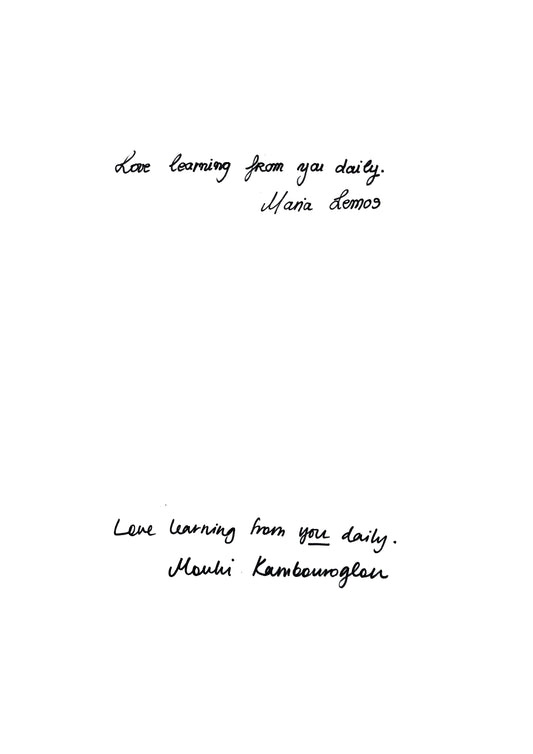 Love learning from you daily.
Maria Lemos
Love learning from you daily.
Mouhi Kambouroglou